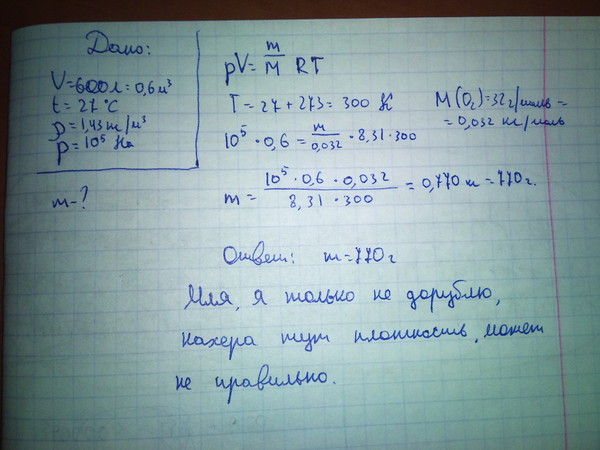 Дано:
V=600л=0,6м³
t=27°C
ρ=1,43кг/м³
p=10⁵ Па
m-?
pV= m/M RT
T=27+273=300 K
M(O₂)=32г/моль=
=0,032 кг/моль
10⁵·0,6= m/0,032 ·8,31·300
m= 10⁵·0,6·0,032 / 8,31·300 =0,770 кг=770г.
Ответ: m=770г
Мля, я только не дорублю,
нахера тут плотность, может
не правильно.